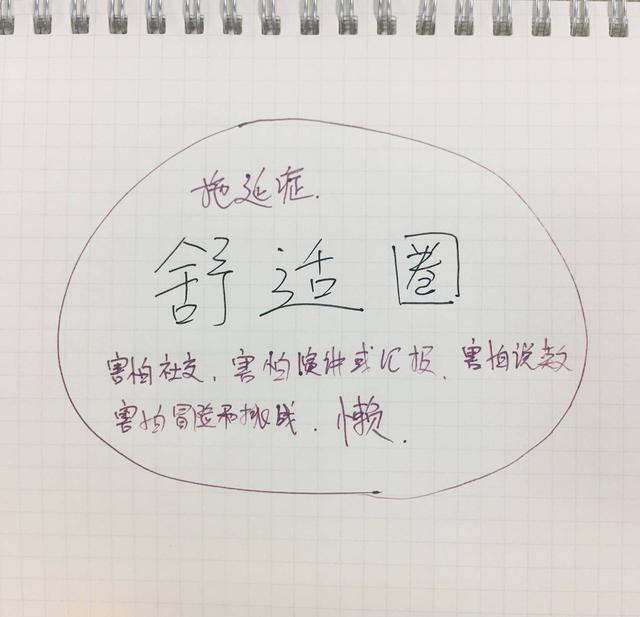 拖延症.
舒适圈
害怕社交、害怕演讲或汇报、害怕说教
害怕冒险和挑战、懒.